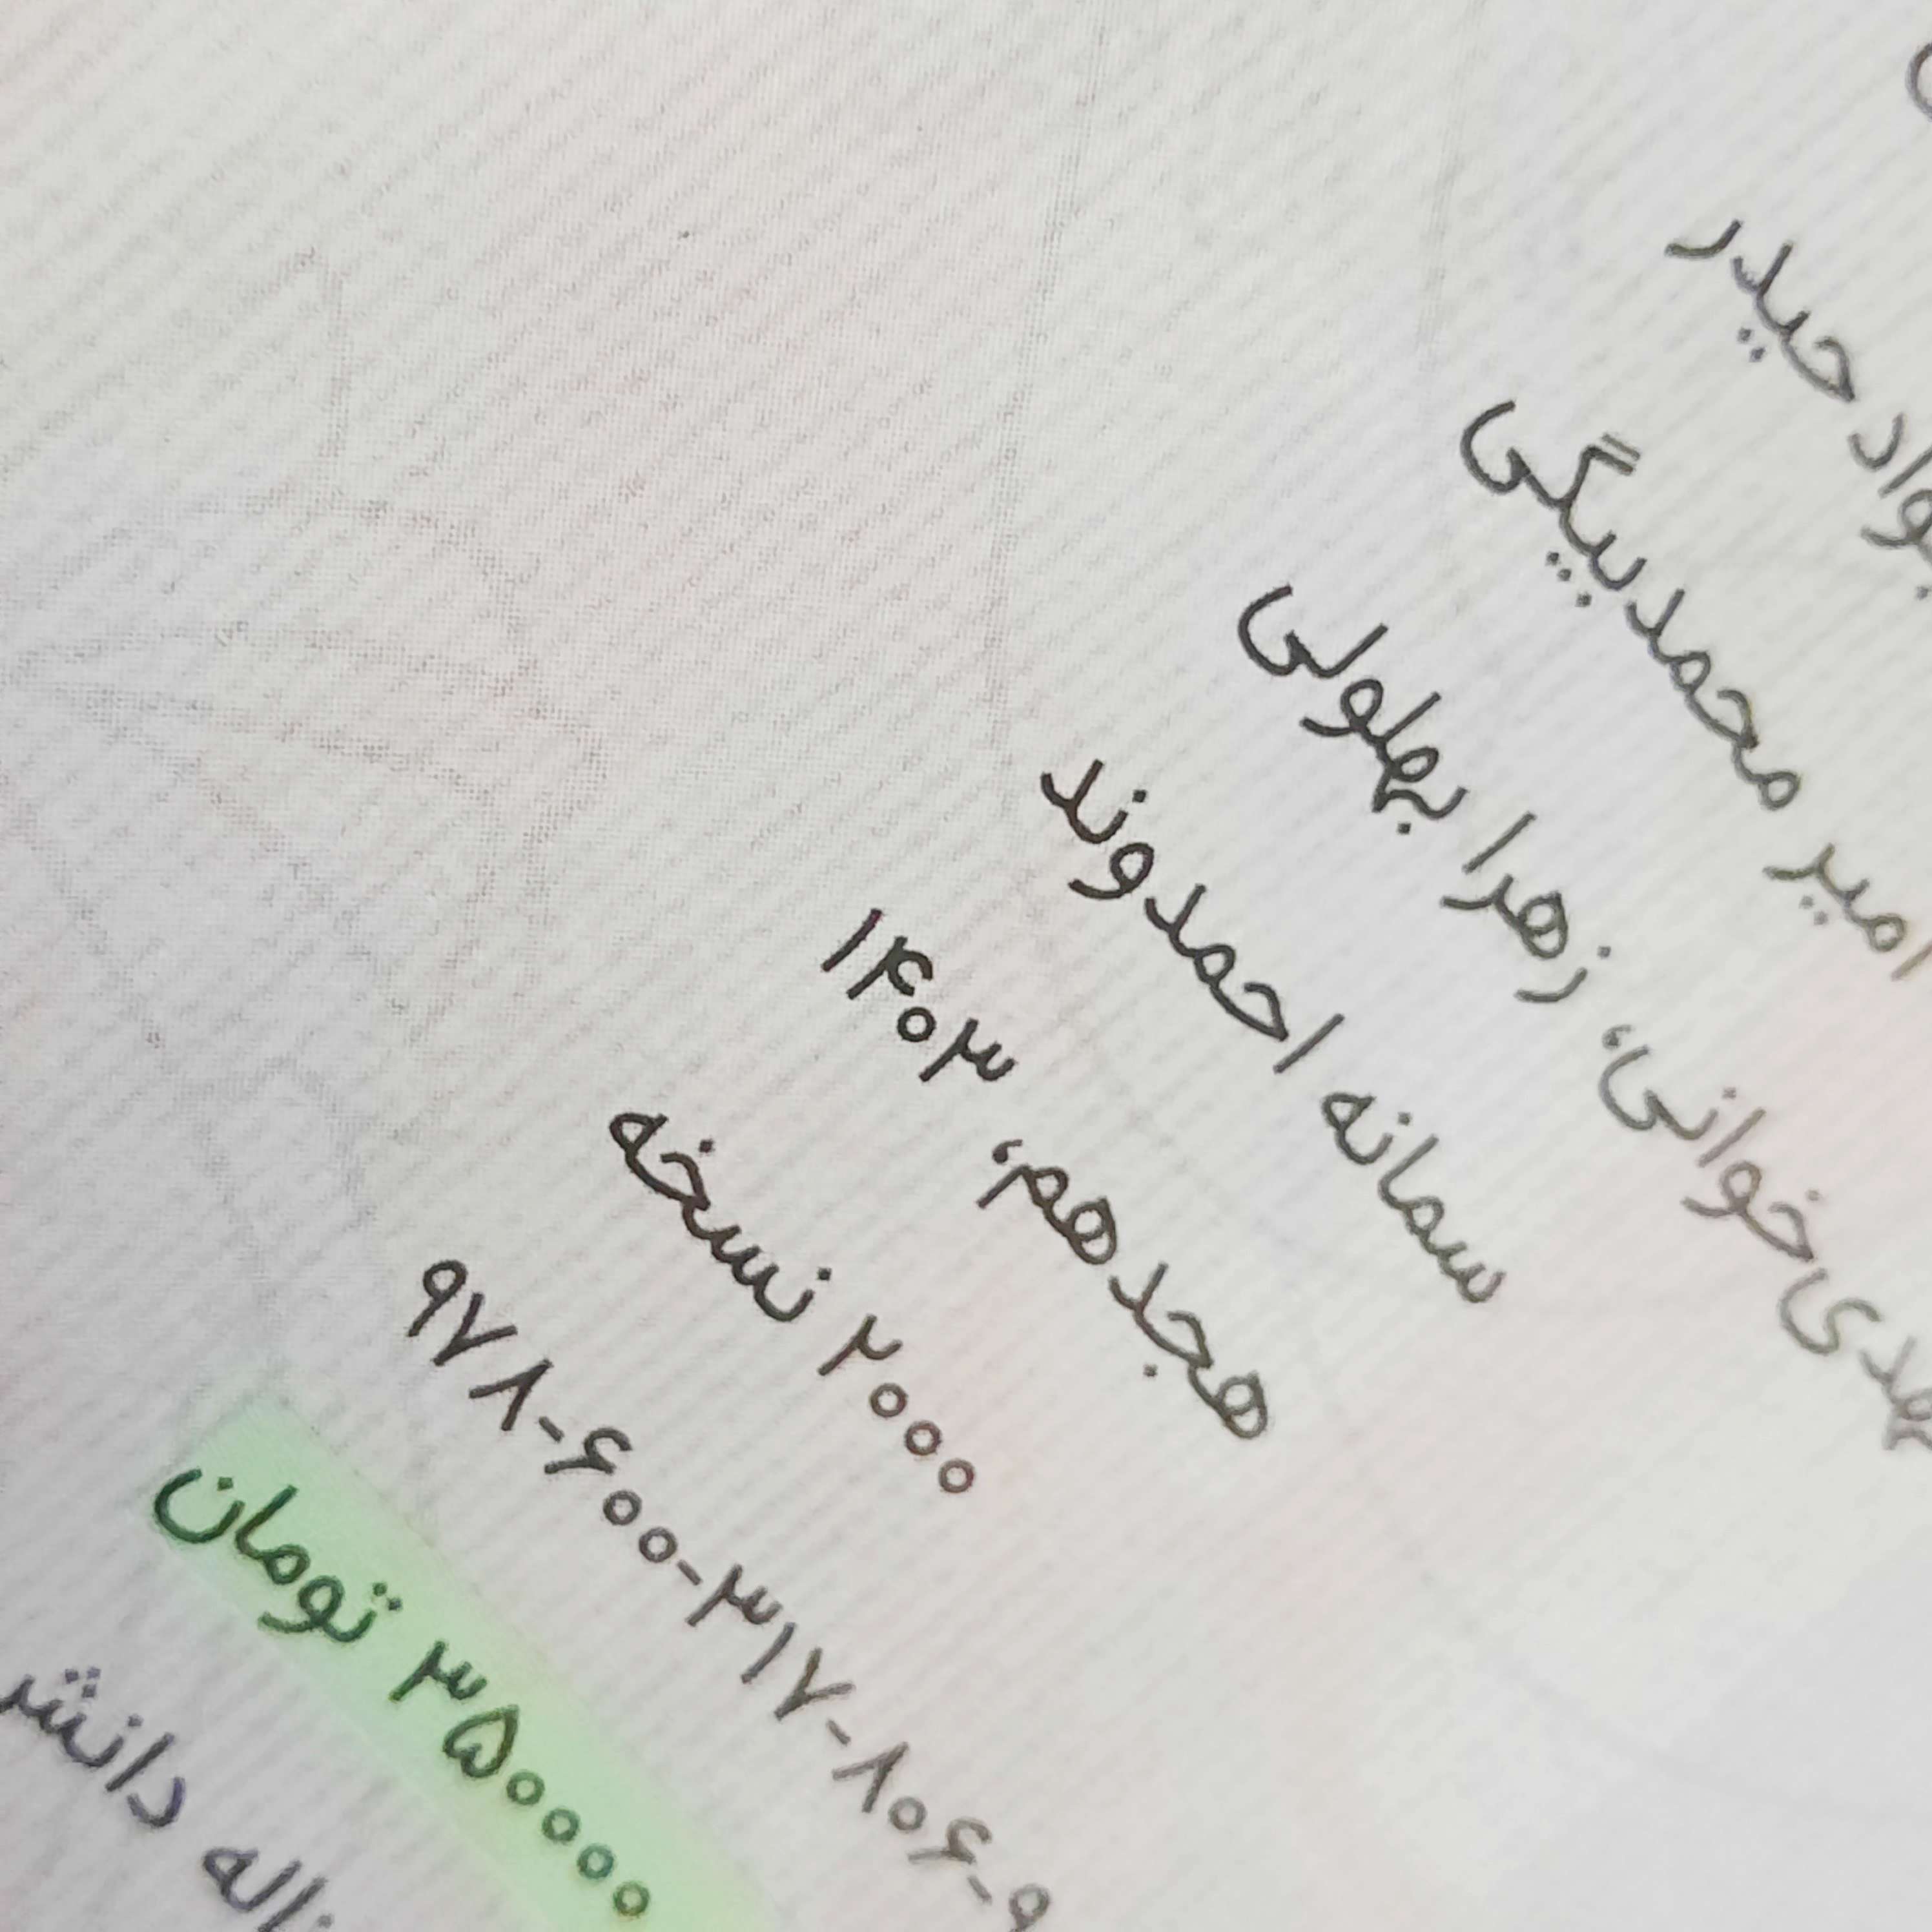 حیدر
امیر محمدبیگی
خوانی، زهرا بهلولی
سمانه احمدوند
هجدهم، ۱۴۰۳
۲۰۰۰ نسخه
۹۷۸-۶۰۰-۳۱۷-۸۰۶-۹
۳۵۰۰۰۰ تومان